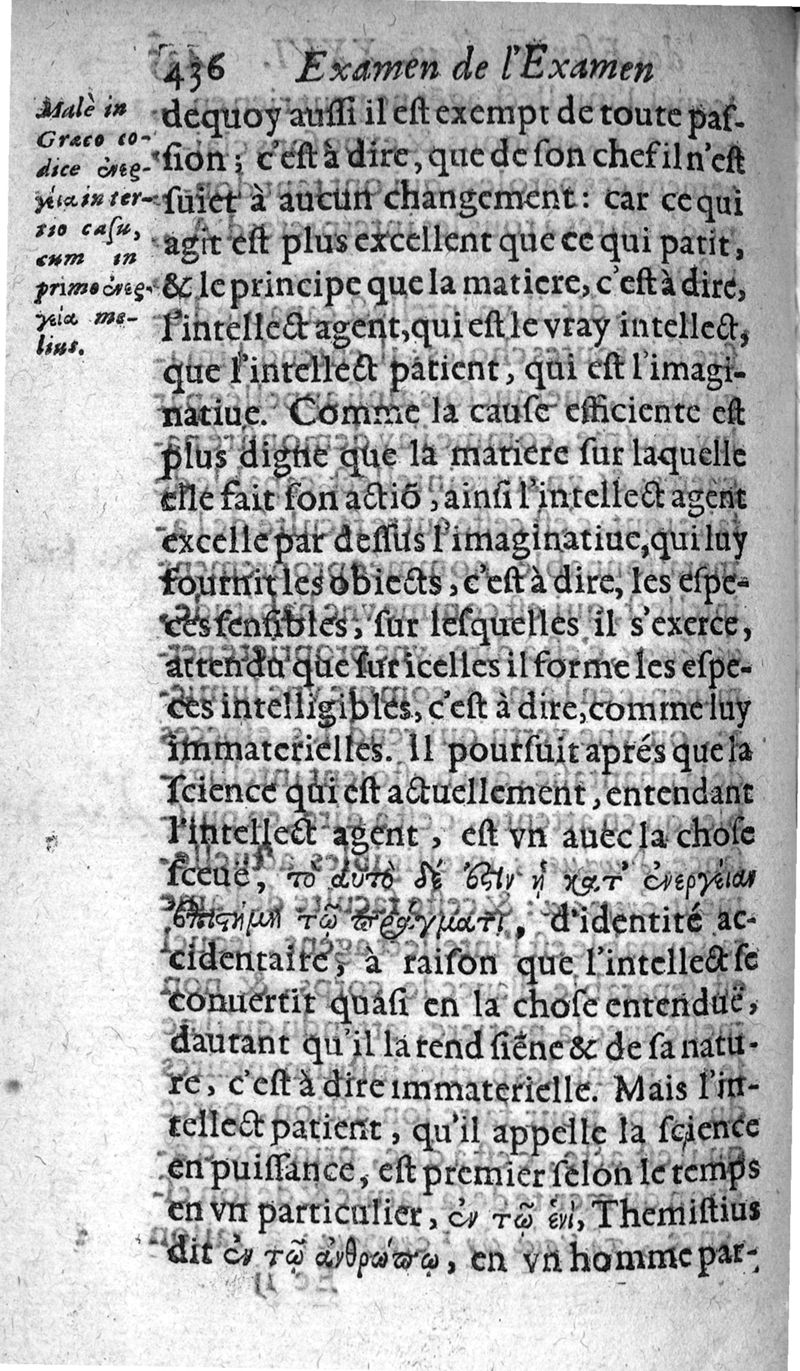 436 Examen de l'Examen
Malè in
Græco co-
dice ἐνερ-
γείᾳ in ter-
tio casu,
cum in
primo ἐνερ-
γεία me-
lius.
dequoy aussi il est exempt de toute pas-
sion; c'est à dire, que de son chef il n'est
suiet à aucun changement: car ce qui
agit est plus excellent que ce qui patit,
& le principe que la matiere, c'est à dire,
l'intellect agent, qui est le vray intellect,
que l'intellect patient, qui est l'imagi-
natiue. Comme la cause efficiente est
plus digne que la matiere sur laquelle
elle fait son actiõ, ainsi l'intellect agent
excelle par dessus l'imaginatiue, qui luy
fournit les obiects, c'est à dire, les espe-
ces sensibles, sur lesquelles il s'exerce,
attendu que sur icelles il forme les espe-
ces intelligibles, c'est à dire, comme luy
immaterielles. Il poursuit aprés que la
science qui est actuellement, entendant
l'intellect agent, est vn auec la chose
sceuë, τὸ αὐτὸ δέ ἐστιν ἡ κατ' ἐνεργείαν
ἐπιστήμη τῷ πράγματι, d'identité ac-
cidentaire, à raison que l'intellect se
conuertit quasi en la chose entenduë,
dautant qu'il la rend siẽne & de sa natu-
re, c'est à dire immaterielle. Mais l'in-
tellect patient, qu'il appelle la science
en puissance, est premier selon le temps
en vn particulier, ἐν τῷ ἑνί, Themistius
dit ἐν τῷ ἀνθρώπῳ, en vn homme par-